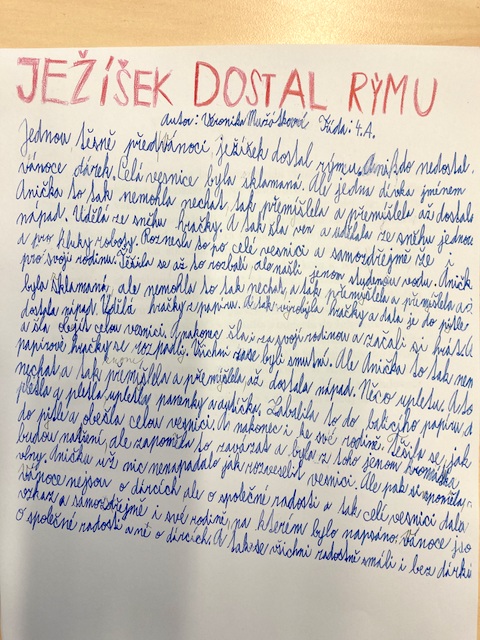 JEŽÍŠEK DOSTAL RÝMU
Autor: Veronika Třída: 4.A.
Jednou těsně před vánoci ježíšek dostal rýmu. A nikdo nedostal
vánoce dárek. Celá vesnice byla sklamaná. Ale jedna dívka jménem
Anička to tak nemohla nechat tak přemýšlela a přemýšlela až dostala
nápad. Udělá ze sněhu hračky. A tak šla ven a udělala ze sněhu jednoro
a pro kluky roboty. Roznesla to po celé vesnici a samozdřejmě že i
pro svoji rodinu. Těšila se až to rozbalí ale našli jenom studenou vodu. Aničk
byla sklamaná, ale nemohla to tak nechat, a tak přemýšlela a přemýšlela až
dostala nápad. Udělá hračky z papíru. A tak vyrobila hračky a dala je do pitle
a šla obejít celou vesnici. A nakonec šla i za svoji rodinou a začali si hrát. A
papírové hračky se rozpadly. Všichni zase byli smutní. Ale Anička to tak nem
nechat a tak přemýšlela a přemýšlela až dostala nápad. Něco upletu. A to
pletla a pletla upletly panenky a autíčka. Zabalila to do balícího papíru d
do pitle a obešla celou vesnici. A nakonec i ke své rodině. Těšila se, jak
budou natšení, ale zapoměla to zavázat a byla z toho jenom hromádka
vlny. Anička už nic nenapadalo jak rozveselit vesnici. Ale pak si vpoměla,
vánoce nejsou o dárcích ale o společné radosti a tak celé vesnici dala
vzkaz a samozdřejmě i své rodině, na kterém bylo napsáno: Vánoce jso
o společné radosti a né o dárcích. A tak se všichni radostně smáli i bez dárků